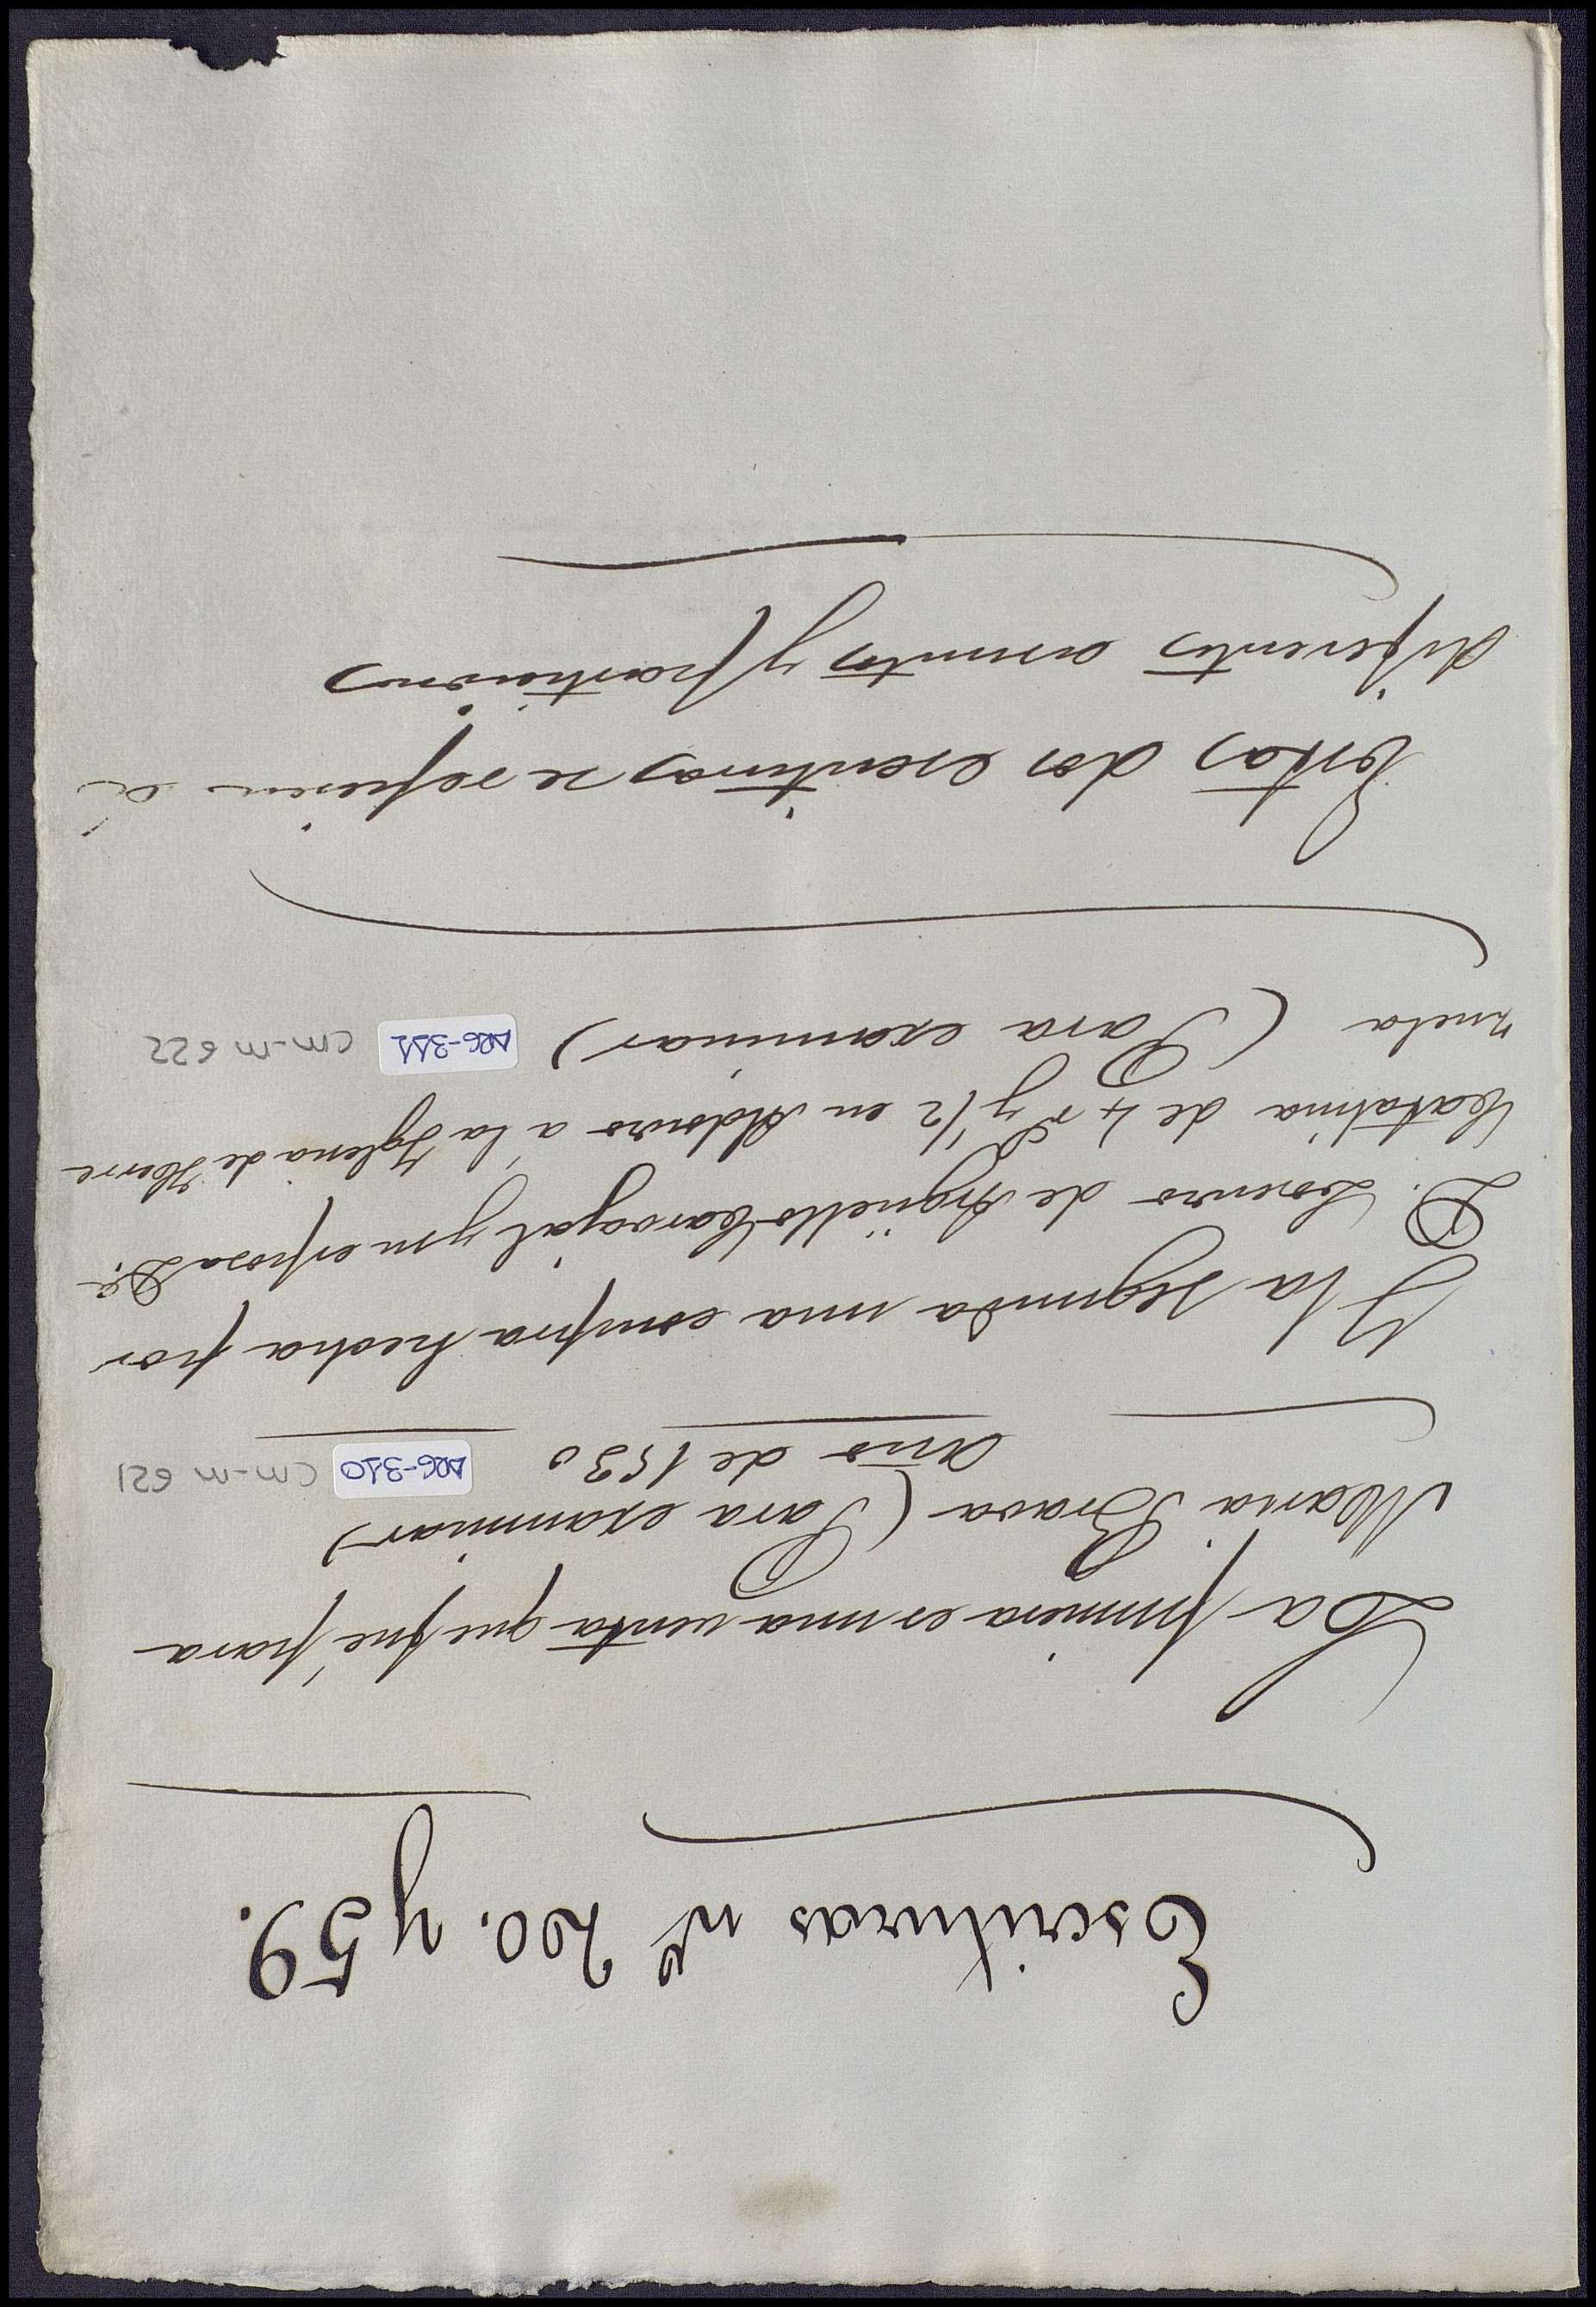 Escrituras nº 200. y 59.
La primera es una venta que fué para
Maria Brava (Para examinar)
Año de 1530 ARG-310 CM-M 621
Y la segunda una compra hecha por
D. Lorenzo de Argüello Carvajal y su esposa Dª
Catalina de 4 rs y 1/2 en Aldouro a la Yglesia de Herre
ruela (Para examinar) ARG-311 CM-M 622
Estas dos escrituras se refieren á
diferentes asuntos y particiones